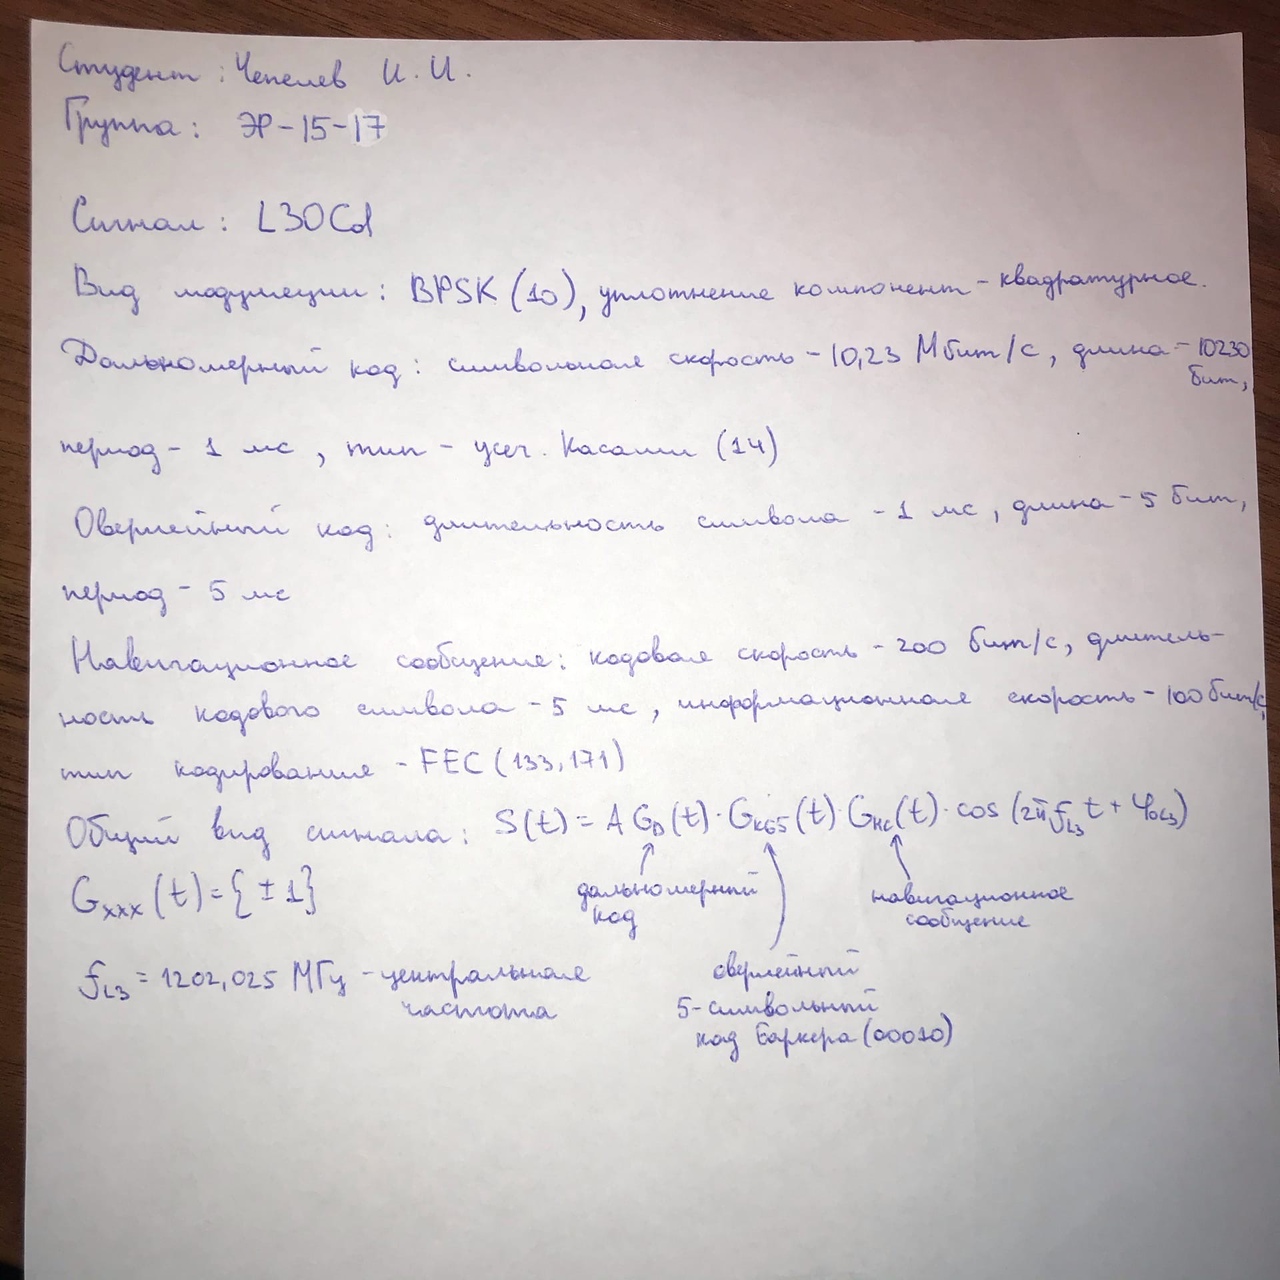 Студент: Чепелев И. И.
Группа: ЭР-15-17
Сигнал: L3OCd
Вид модуляции: BPSK(10), уплотнение компонент - квадратурное.
Дальномерный код: символьная скорость - 10,23 Мбит/с, длина - 10230
бит,
период - 1 мс, тип - усеч. Касами (14)
Оверлейный код: длительность символа - 1 мс, длина - 5 бит,
период - 5 мс
Навигационное сообщение: кодовая скорость - 200 бит/с, длитель-
ность кодового символа - 5 мс, информационная скорость - 100 бит/с,
тип кодирования - FEC(133,171)
Общий вид сигнала: S(t) = A G_D(t) · G_КБ5(t) · G_НС(t) · cos(2π f_L3 t + φ_0L3)
G_xxx(t) = {±1}
дальномерный
код
навигационное
сообщение
f_L3 = 1202,025 МГц - центральная
частота
оверлейный
5-символьный
код Баркера (00010)